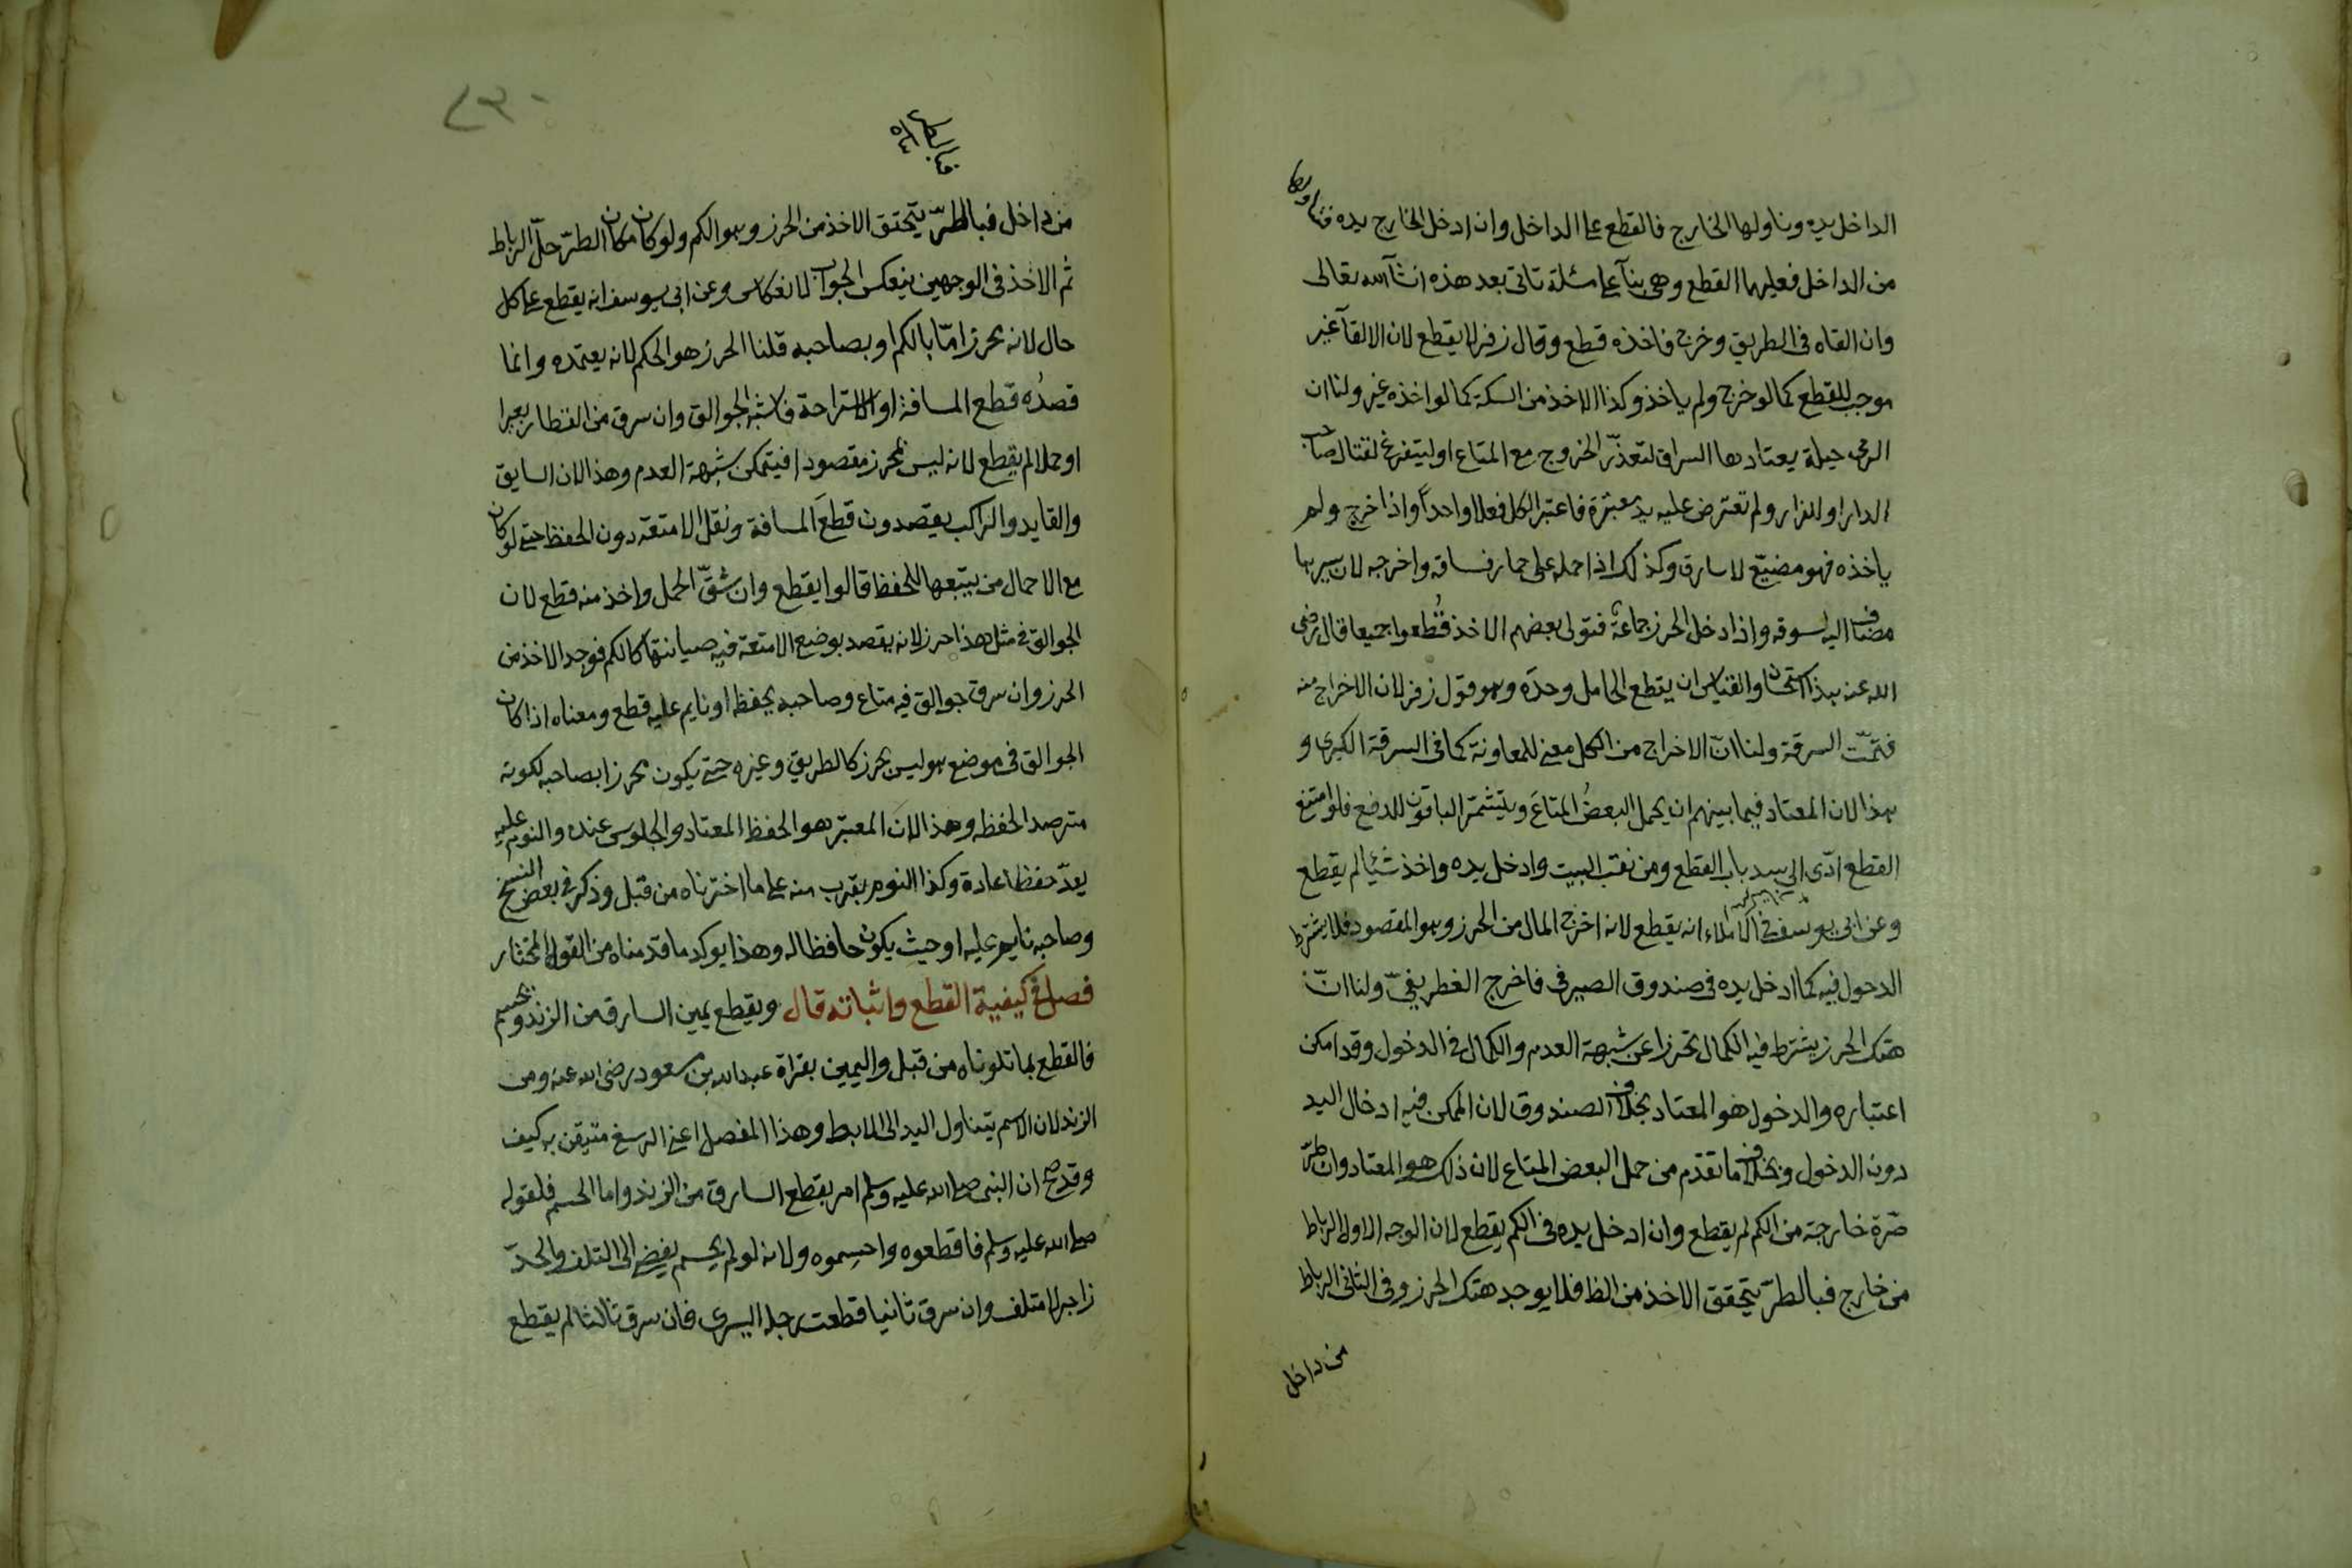 الداخل يده وناولها الخارج فالقطع على الداخل وان ادخل الخارج يده فتناولها
من الداخل فعليهما القطع وهي بناء على مسئلة تاتي بعد هذه ان شآء الله تعالى
وان القاه في الطريق وخرج فاخذه قطع وقال زفر لا يقطع لان الالقآ غير
موجب للقطع كما لو خرج ولم ياخذ وكذا الاخذ من السكة كما لو اخذه غيره ولنا ان
الرمي حيلة يعتادها السراق لتعذّر الخروج مع المتاع او ليتفرغ لقتال صاحب
الدار او للفرار ولم تعترض عليه يد معتبرة فاعتبر الكل فعلا واحداً واذا خرج ولم
ياخذه فهو مضيّع لا سارق وكذلك اذا حمله على حمار فساقه واخرجه لان سيرها
مضاف اليه لسوقه واذا دخل الحرز جماعة فتولى بعضهم الاخذ قُطعوا جميعا قال رضي
الله عنه هذا استحسان والقياس ان يقطع الحامل وحدَه وهو قول زفر لان الاخراج منه
فتمّت السرقة ولنا انّ الاخراج من الكل معنى للمعاونة كما في السرقة الكبرى و
هذا لان المعتاد فيما بينهم ان يحمل البعضُ المتاعَ ويتشمّر الباقون للدفع فلو امتنع
القطع ادّى الى سد باب القطع ومن نقب البيت وادخل يده واخذ شيئا لم يقطع
وعن ابي يوسف في الاملاء انه يقطع لانه اخرج المال من الحرز وهو المقصود فلا يشترط
الدخول فيه كما ادخل يده في صندوق الصيرفي فاخرج الغطريفيّ ولنا انّ
هتك الحرز يشترط فيه الكمال تحرزا عن شبهة العدم والكمال في الدخول وقد امكن
اعتباره والدخول هو المعتاد بخلاف الصندوق لان الممكن فيه ادخال اليد
دون الدخول وبخلاف ما تقدّم من حمل البعض المتاع لان ذلك هو المعتاد وان طرّ
صّرة خارجة من الكم لم يقطع وان ادخل يده في الكم يقطع لان الوجه الاول الرباط
من خارج فبالطرّ يتحقق الاخذ من الظا فلا يوجد هتك الحرز وفي الثاني الرباط
من داخل
من داخل فبالطرّ يتحقق الاخذ من الحرز وهو الكم ولو كان مكان الطرّ حلّ الرباط
ثم الاخذ في الوجهين ينعكس الجواب لانعكاس وعن ابي يوسف انه يقطع على كل
حال لانه محرز امّا بالكم او بصاحبه قلنا الحرز هو الكم لانه يعتمده وانما
قصدُه قطع المسافة او الاستراحة فاشبه الجوالق وان سرق من القطار بعيرا
او حملا لم يقطع لانه ليس بمحرز مقصودا فيتمكن شبهة العدم وهذا لان السايق
والقايد والراكب يقصدون قطعَ المسافة ونقل الامتعة دون الحفظ حتى لو كان
مع الاحمال من يتبعها للحفظ قالوا يقطع وان شقّ الحمل واخذ منه قطع لان
الجوالق في مثل هذا حرز لانه يقصد بوضع الامتعة فيه صيانتها كالكم فوجد الاخذ من
الحرز وان سرق جوالق فيه متاع وصاحبه يحفظه او نايم عليه قطع ومعناه اذا كان
الجوالق في موضع هو ليس بحرز كالطريق وغيره حتى يكون محرزا بصاحبه لكونه
مترصدا لحفظه وهذا لان المعتبر هو الحفظ المعتاد والجلوس عنده والنوم عليه
يعدّ حفظا عادة وكذا النوم بقرب منه على ما اخترناه من قبل وذكر في بعض النسخ
وصاحبه نايم عليه او حيث يكون حافظا له وهذا يوكد ما قدّمناه من القول المختار
فصل في كيفية القطع واثباته قال ويقطع يمين السارق من الزند ويحسم
فالقطع بما تلوناه من قبل واليمين بقراة عبد الله بن مسعود رضي الله عنه ومن
الزند لان الاسم يتناول اليد الى الابط وهذا المفصل اعني الرسغ متيقن به كيف
وقد صح ان النبي صلى الله عليه وسلم امر بقطع السارق من الزند واما الحسم فلقوله
صلى الله عليه وسلم فاقطعوه واحسِموه ولانه لو لم يحسم يفضي الى التلف والحدّ
زاجر لا متلف وان سرق ثانيا قطعت رجله اليسرى فان سرق ثالثا لم يقطع